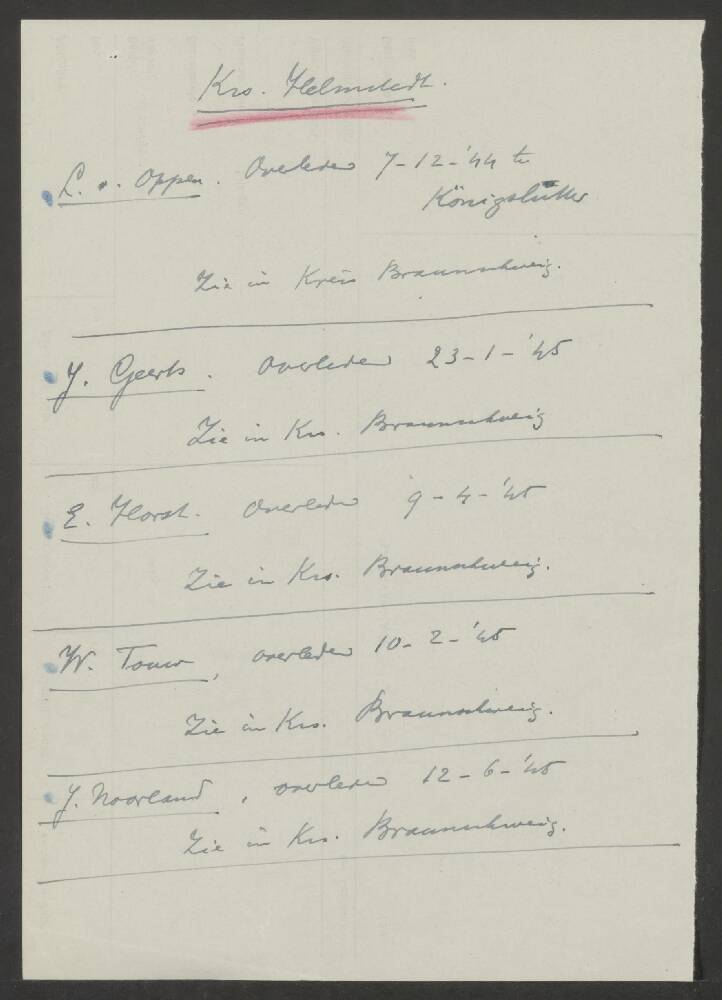 Krs. Helmstedt.
L. v. Oppen. Overleden 7-12-'44 te
Königslutter
Zie in Kreis Braunschweig.
J. Geerts. Overleden 23-1-'45
Zie in Krs. Braunschweig
E. Horst. Overleden 9-4-'45
Zie in Krs. Braunschweig.
W. Touw, overleden 10-2-'45
Zie in Krs. Braunschweig.
J. Noorland, overleden 12-6-'45
Zie in Krs. Braunschweig.